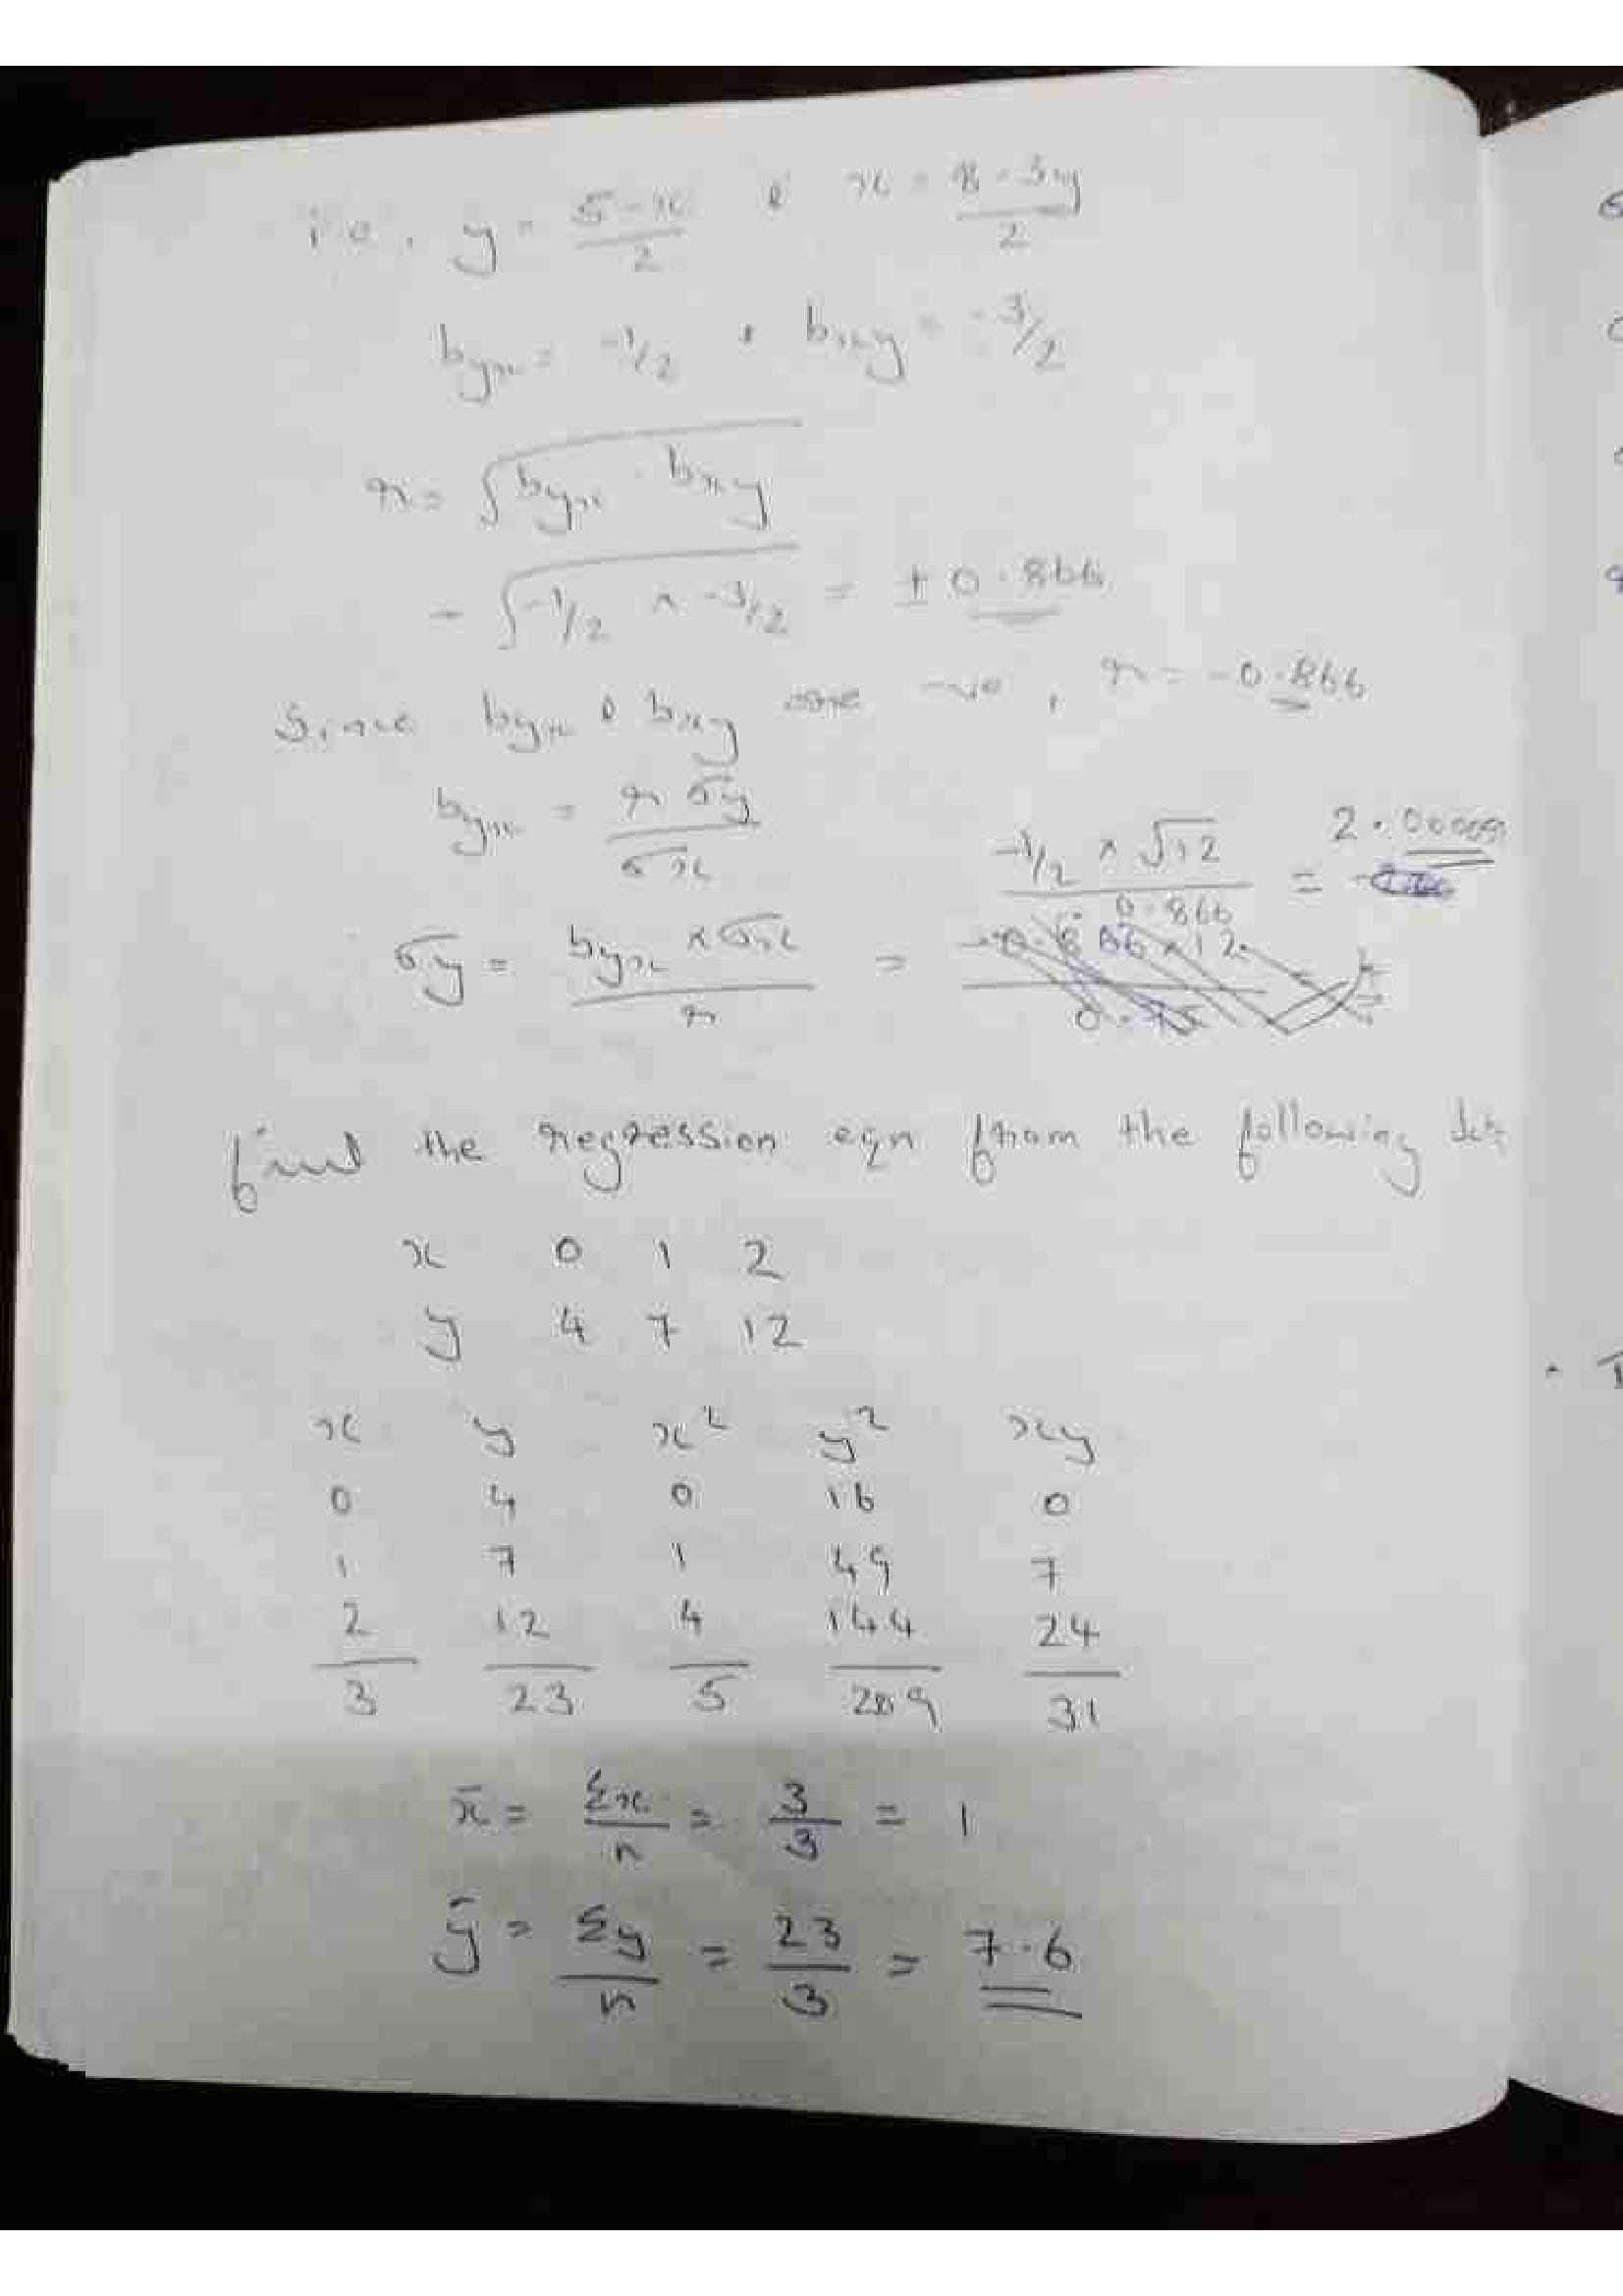 i.e., y = (5-x)/2 & x = (8-3y)/2
byx = -1/2 , bxy = -3/2
r = √(byx · bxy)
= √(-1/2 × -3/2) = ± 0.866
Since byx & bxy are -ve , r = -0.866
byx = r σy / σx
σy = byx × σx / r = (-1/2 × √12) / -0.866 = 2.00009
find the regression eqn from the following
x 0 1 2
y 4 7 12
x y x² y² xy
0 4 0 16 0
1 7 1 49 7
2 12 4 144 24
3 23 5 209 31
x̄ = Σx/n = 3/3 = 1
ȳ = Σy/n = 23/3 = 7.6